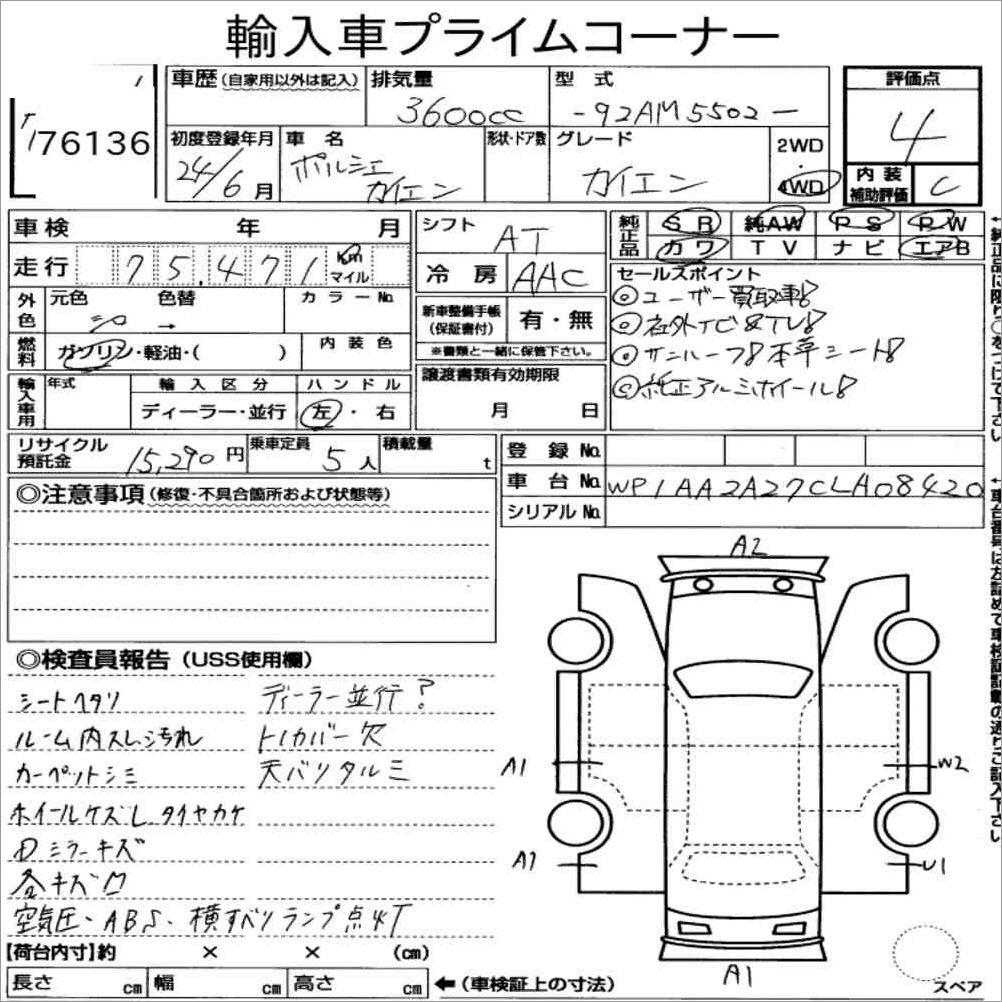 輸入車プライムコーナー
76136
車歴(自家用以外は記入) 排気量 3600cc 型式 -92AM5502-
評価点 4
初度登録年月 24/6月 車名 ポルシェ カイエン 形状・ドア数 グレード カイエン 2WD 4WD
内装補助評価 C
車検 年 月 シフト AT
純正品 SR 純AW PS PW
カワ TV ナビ エアB
走行 75,471 Km マイル 冷房 AAC
外色 元色 シロ → 色替 カラーNo.
燃料 ガソリン・軽油・( ) 内装色
新車整備手帳(保証書付) 有・無
※書類と一緒に保管下さい。
セールスポイント
◎ユーザー買取車!
◎社外TV&TV!
◎サンルーフ!本革シート!
◎純正アルミホイール!
輸入車用 年式 輸入区分 ディーラー・並行 ハンドル 左・右
譲渡書類有効期限 月 日
リサイクル預託金 15,290円 乗車定員 5人 積載量 t
登録No.
車台No. WP1AA2A27CLA08420
シリアルNo.
◎注意事項(修復・不具合箇所および状態等)
◎検査員報告(USS使用欄)
シートヘタリ ディーラー並行?
ルーム内スレ汚れ トノカバー欠
カーペットシミ 天バリタルミ
ホイールキズし タイヤカケ
Dミラーキズ
各キズ凹
空気圧・ABS・横すべりランプ点灯
A2
A1
W2
A1
U1
A1
スペア
【荷台内寸】約 × × (cm)
長さ cm 幅 cm 高さ cm ←(車検証上の寸法)